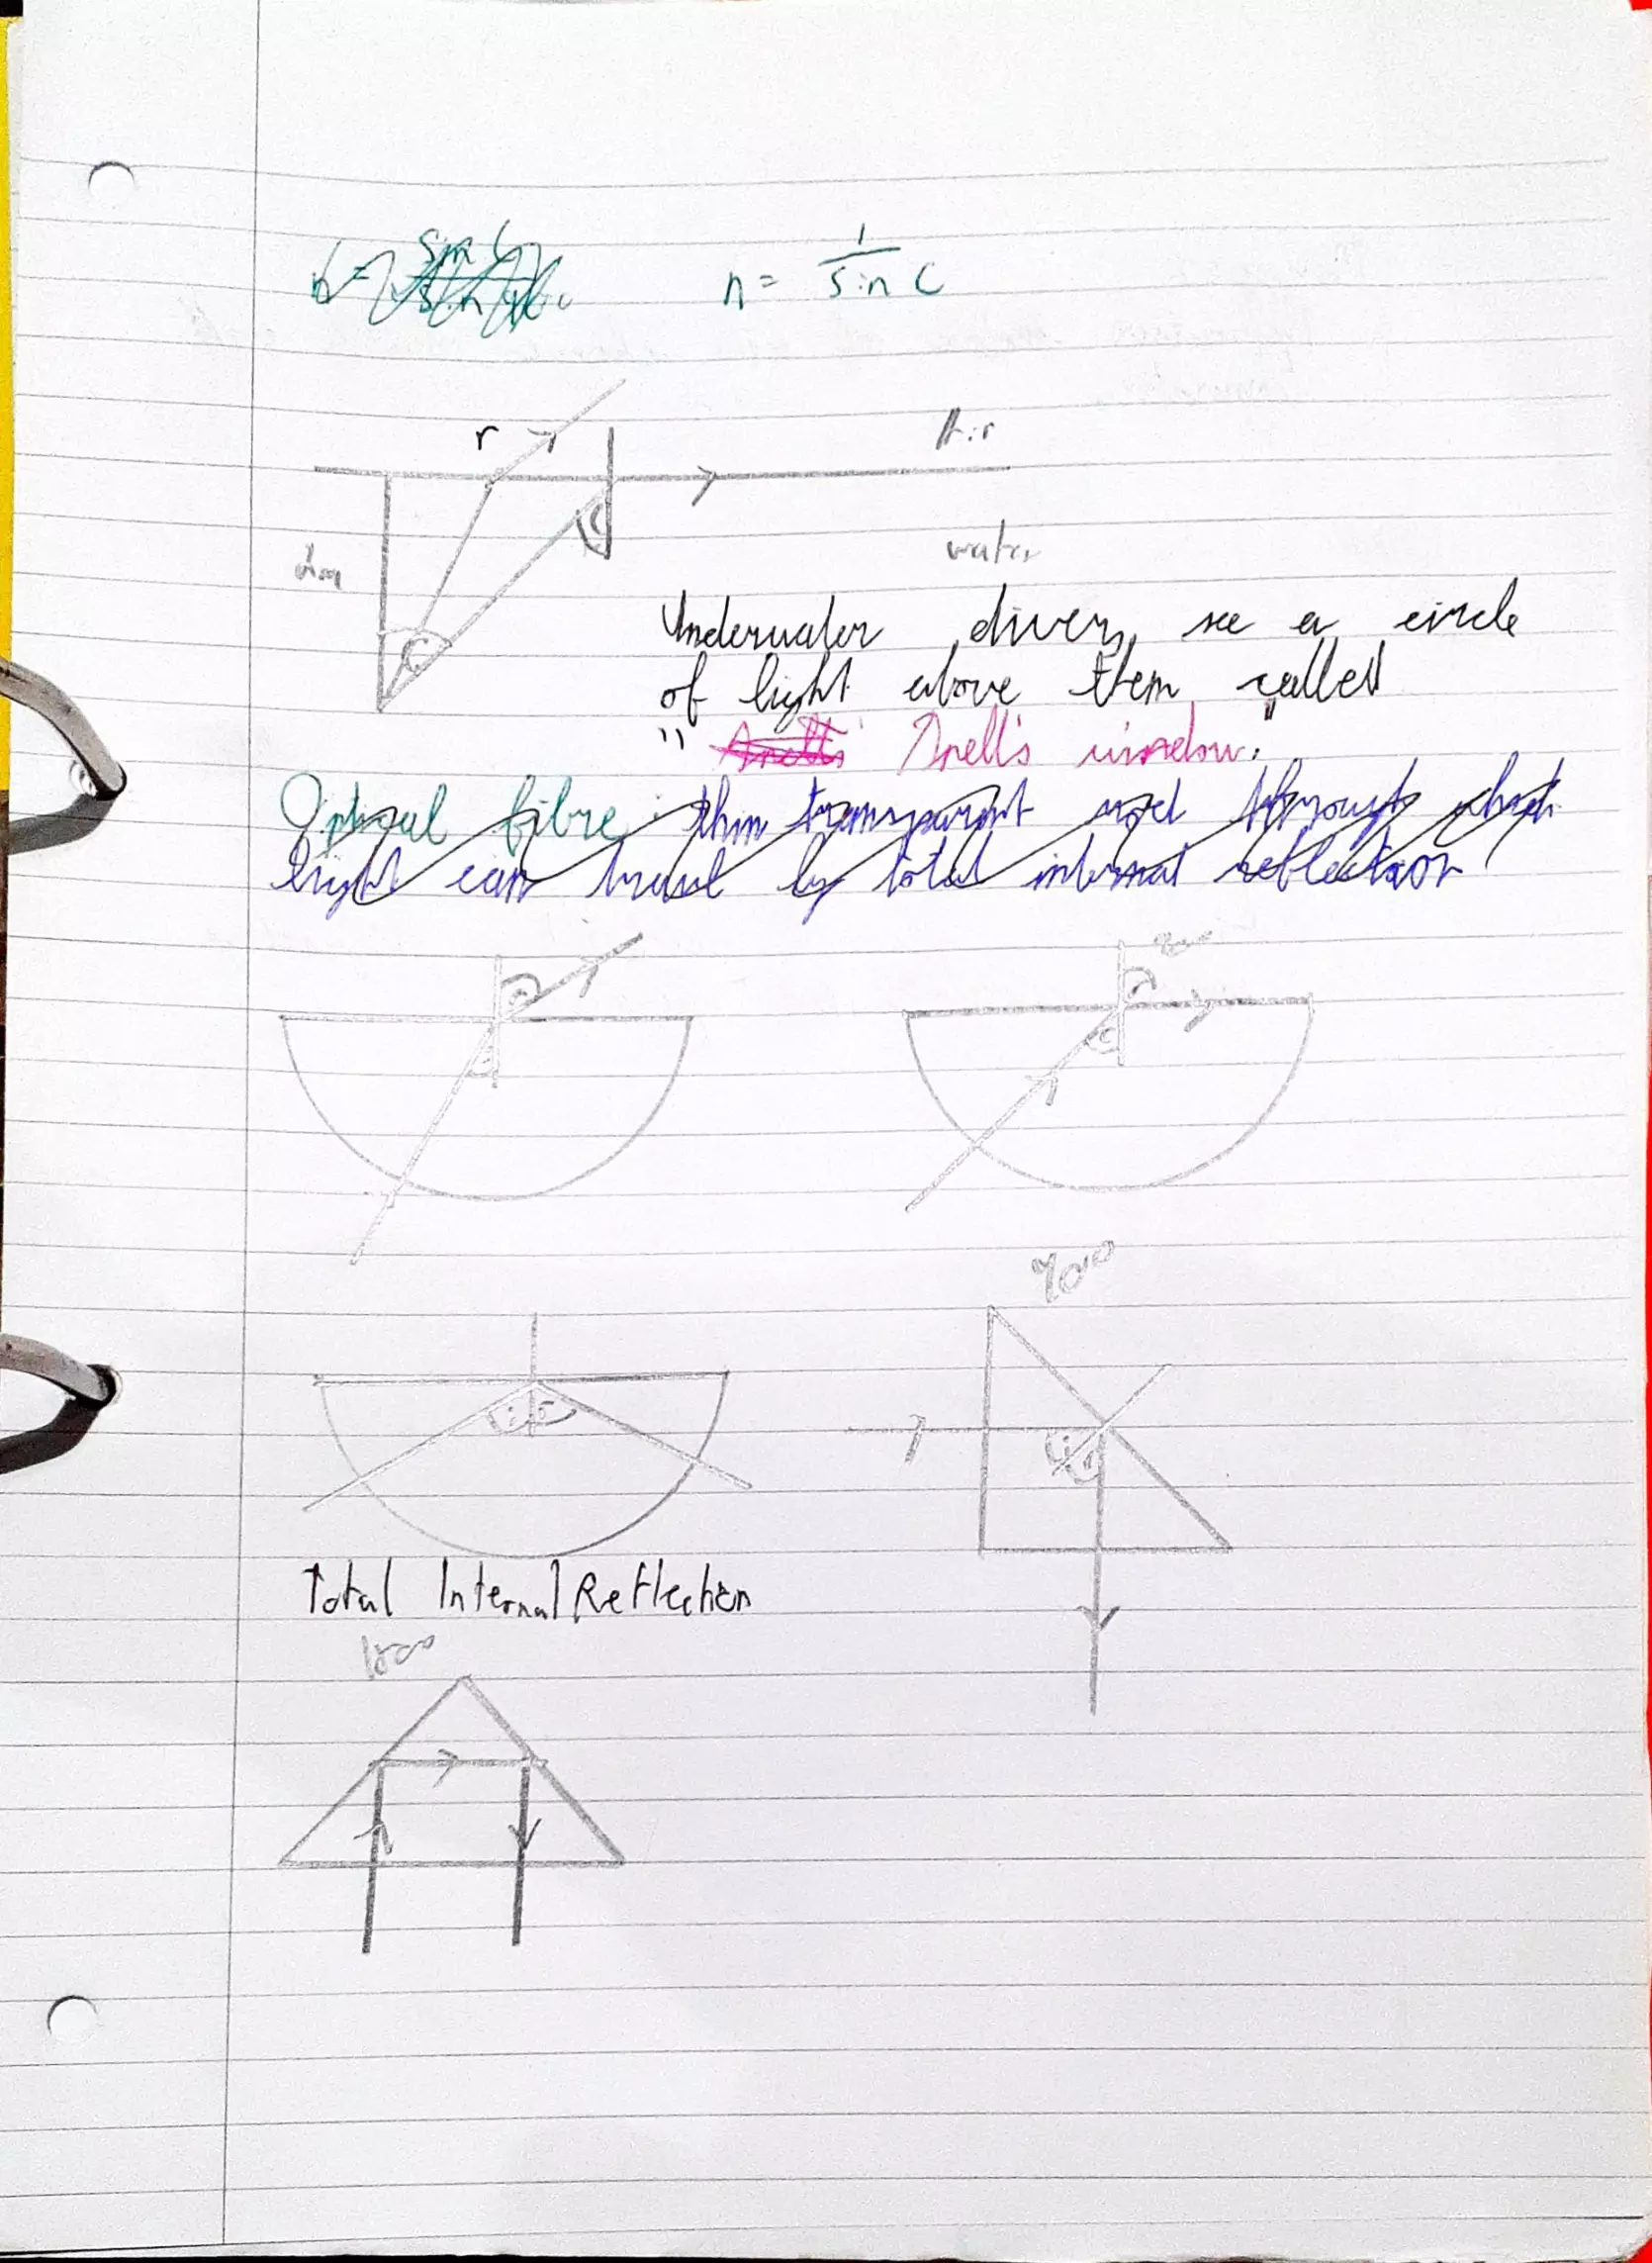 n = 1 / sin C
r
Air
C
water
C
Underwater divers see a circle
of light above them called
" Snell's Snell's window."
Optical fibre: thin transparent rod through which
light can travel by total internal reflection
C
i r
i r
Total Internal Reflection